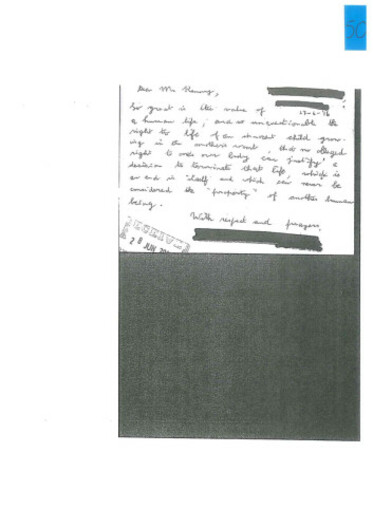 50
Dear
So great is the value of
a human life, and so unquestionable the
right to life of an innocent child grow-
ing in the mother's womb, that no alleged
right to own body can justify a
decision to terminate that life, which is
an end in itself and which can never be
considered the "property" of another human
being.
With respect and prayers,
RECEIVED
28 JUN